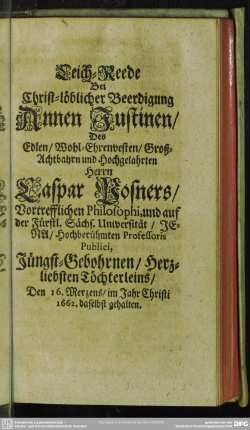 Leich-Reede
Bei
Christ-löblicher Beerdigung
Annen Justinen/
Des
Edlen/ Wohl-Ehrenvesten/ Groß-
Achtbahrn und Hochgelahrten
Herrn
Caspar Posners/
Vortrefflichen Philosophi, und auf
der Fürstl. Sächs. Universität/ JE-
NA/ Hochberühmten Professoris
Publici,
Jüngst-Gebohrnen/ Herz-
liebsten Töchterleins/
Den 16. Merzens/ im Jahr Christi
1662. daselbst gehalten.